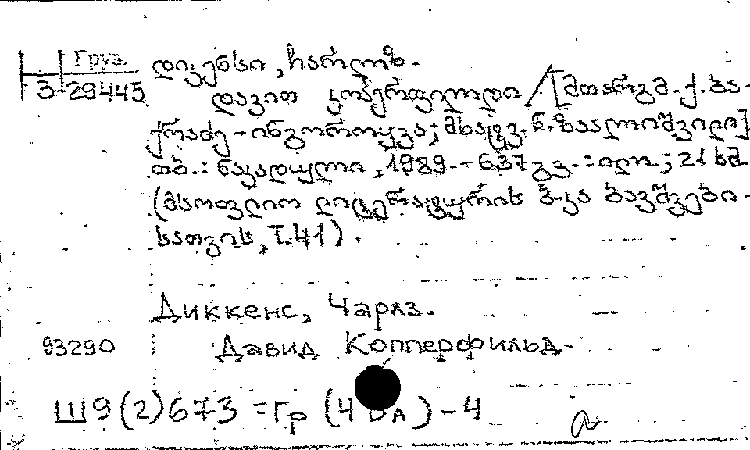 Груз.
3-29445
დიკენსი, ჩარლზ.
დავით კოპერფილდი / [მთარგმ. ქ. ბა-
ქრაძე-ინგოროყვა; მხატვ. ზ. ზაალიშვილი]
თბ.: ნაკადული, 1989. - 637 გვ.: ილ.; 21 სმ
(მსოფლიო ლიტერატურის ბ-კა ბავშვები-
სათვის, ტ. 41).
Диккенс, Чарлз.
93290 Давид Копперфильд.
Ш9(2)673 = Гр (4 ) - 4